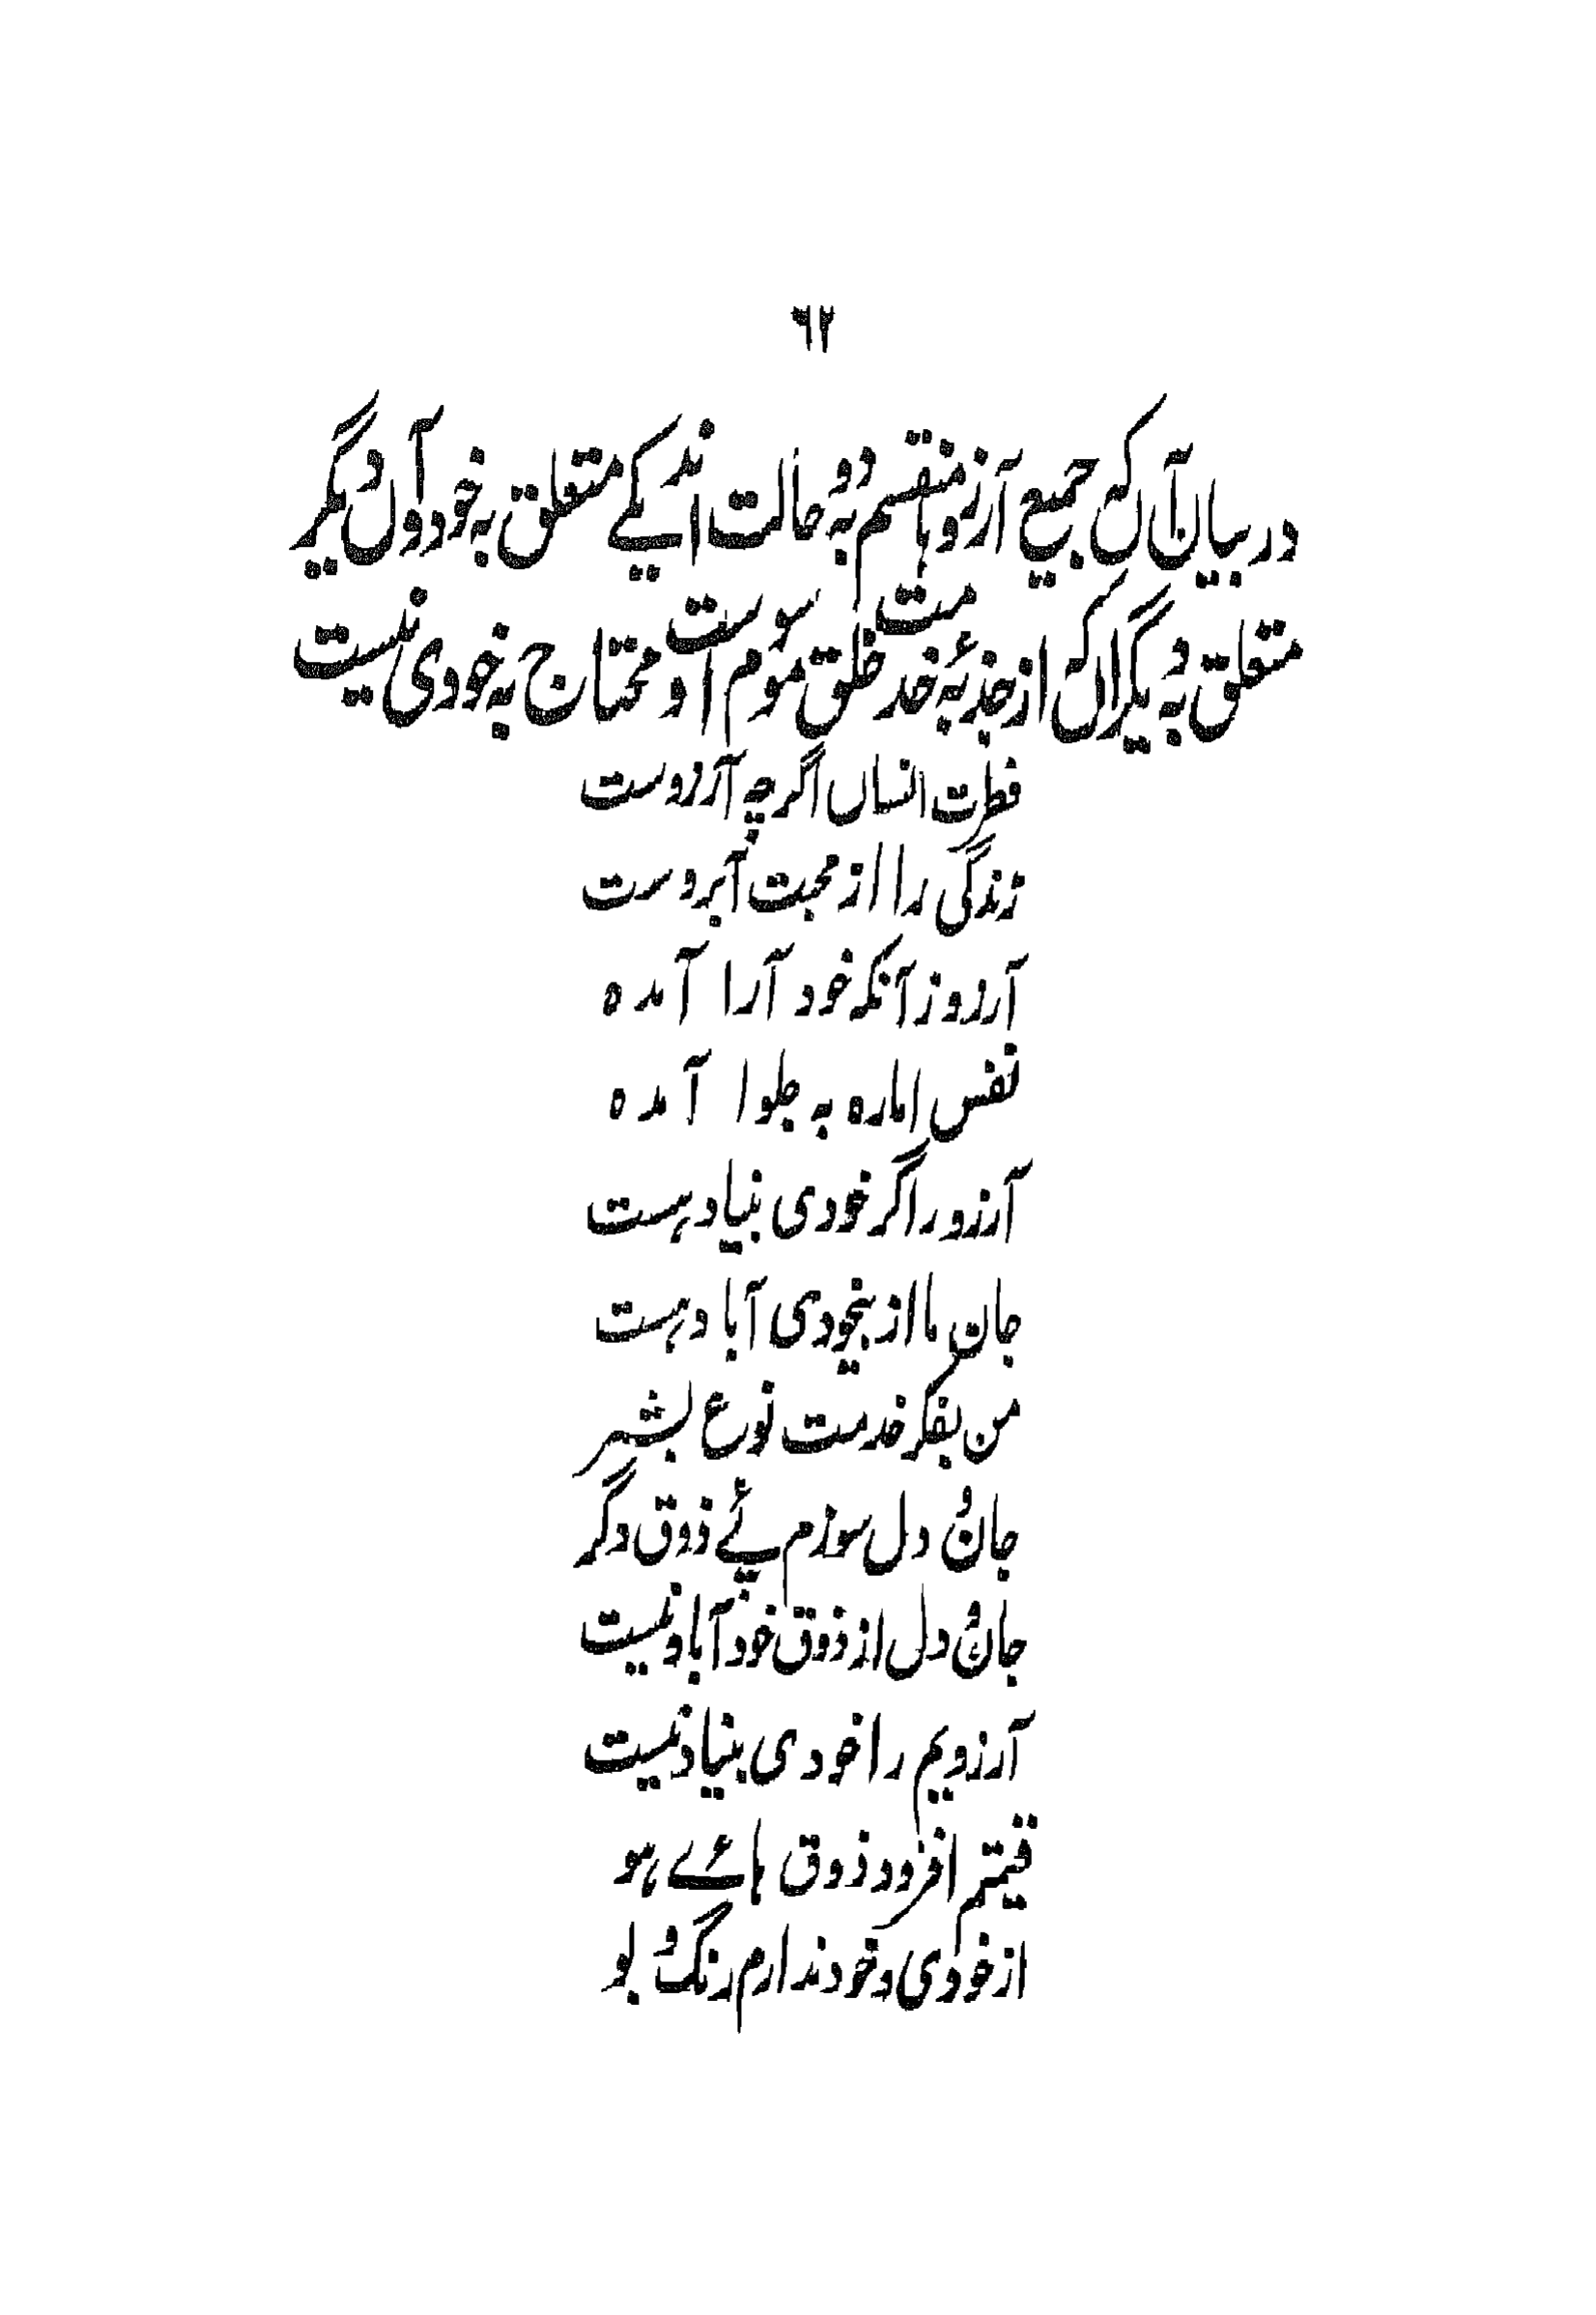 ۹۲
در بیان آں کہ جمیع آرزوہا منقسم بہ دو حالت اند یکے متعلق بہ خود و آں دیگر
متعلق بہ دیگراں کہ از جذبۂ خدمت خلق موسوم است و محتاج بہ خودی نیست
فطرت انساں اگرچہ آرزوست
زندگی را از محبت آبروست
آرزو ز آنکہ خود آرا آمدہ
نفس امارہ بہ جلوا آمدہ
آرزو را گر خودی بنیاد ہست
جان ما از بیخودی آباد ہست
من بفکر خدمت نوع بشر
جان و دل سوزم پئے ذوق دگر
جان و دل از ذوق خود آباد نیست
آرزویم را خودی بنیاد نیست
قیمتم افزود ذوق ہائے ہو
از خودی و خود ندارم رنگ و بو